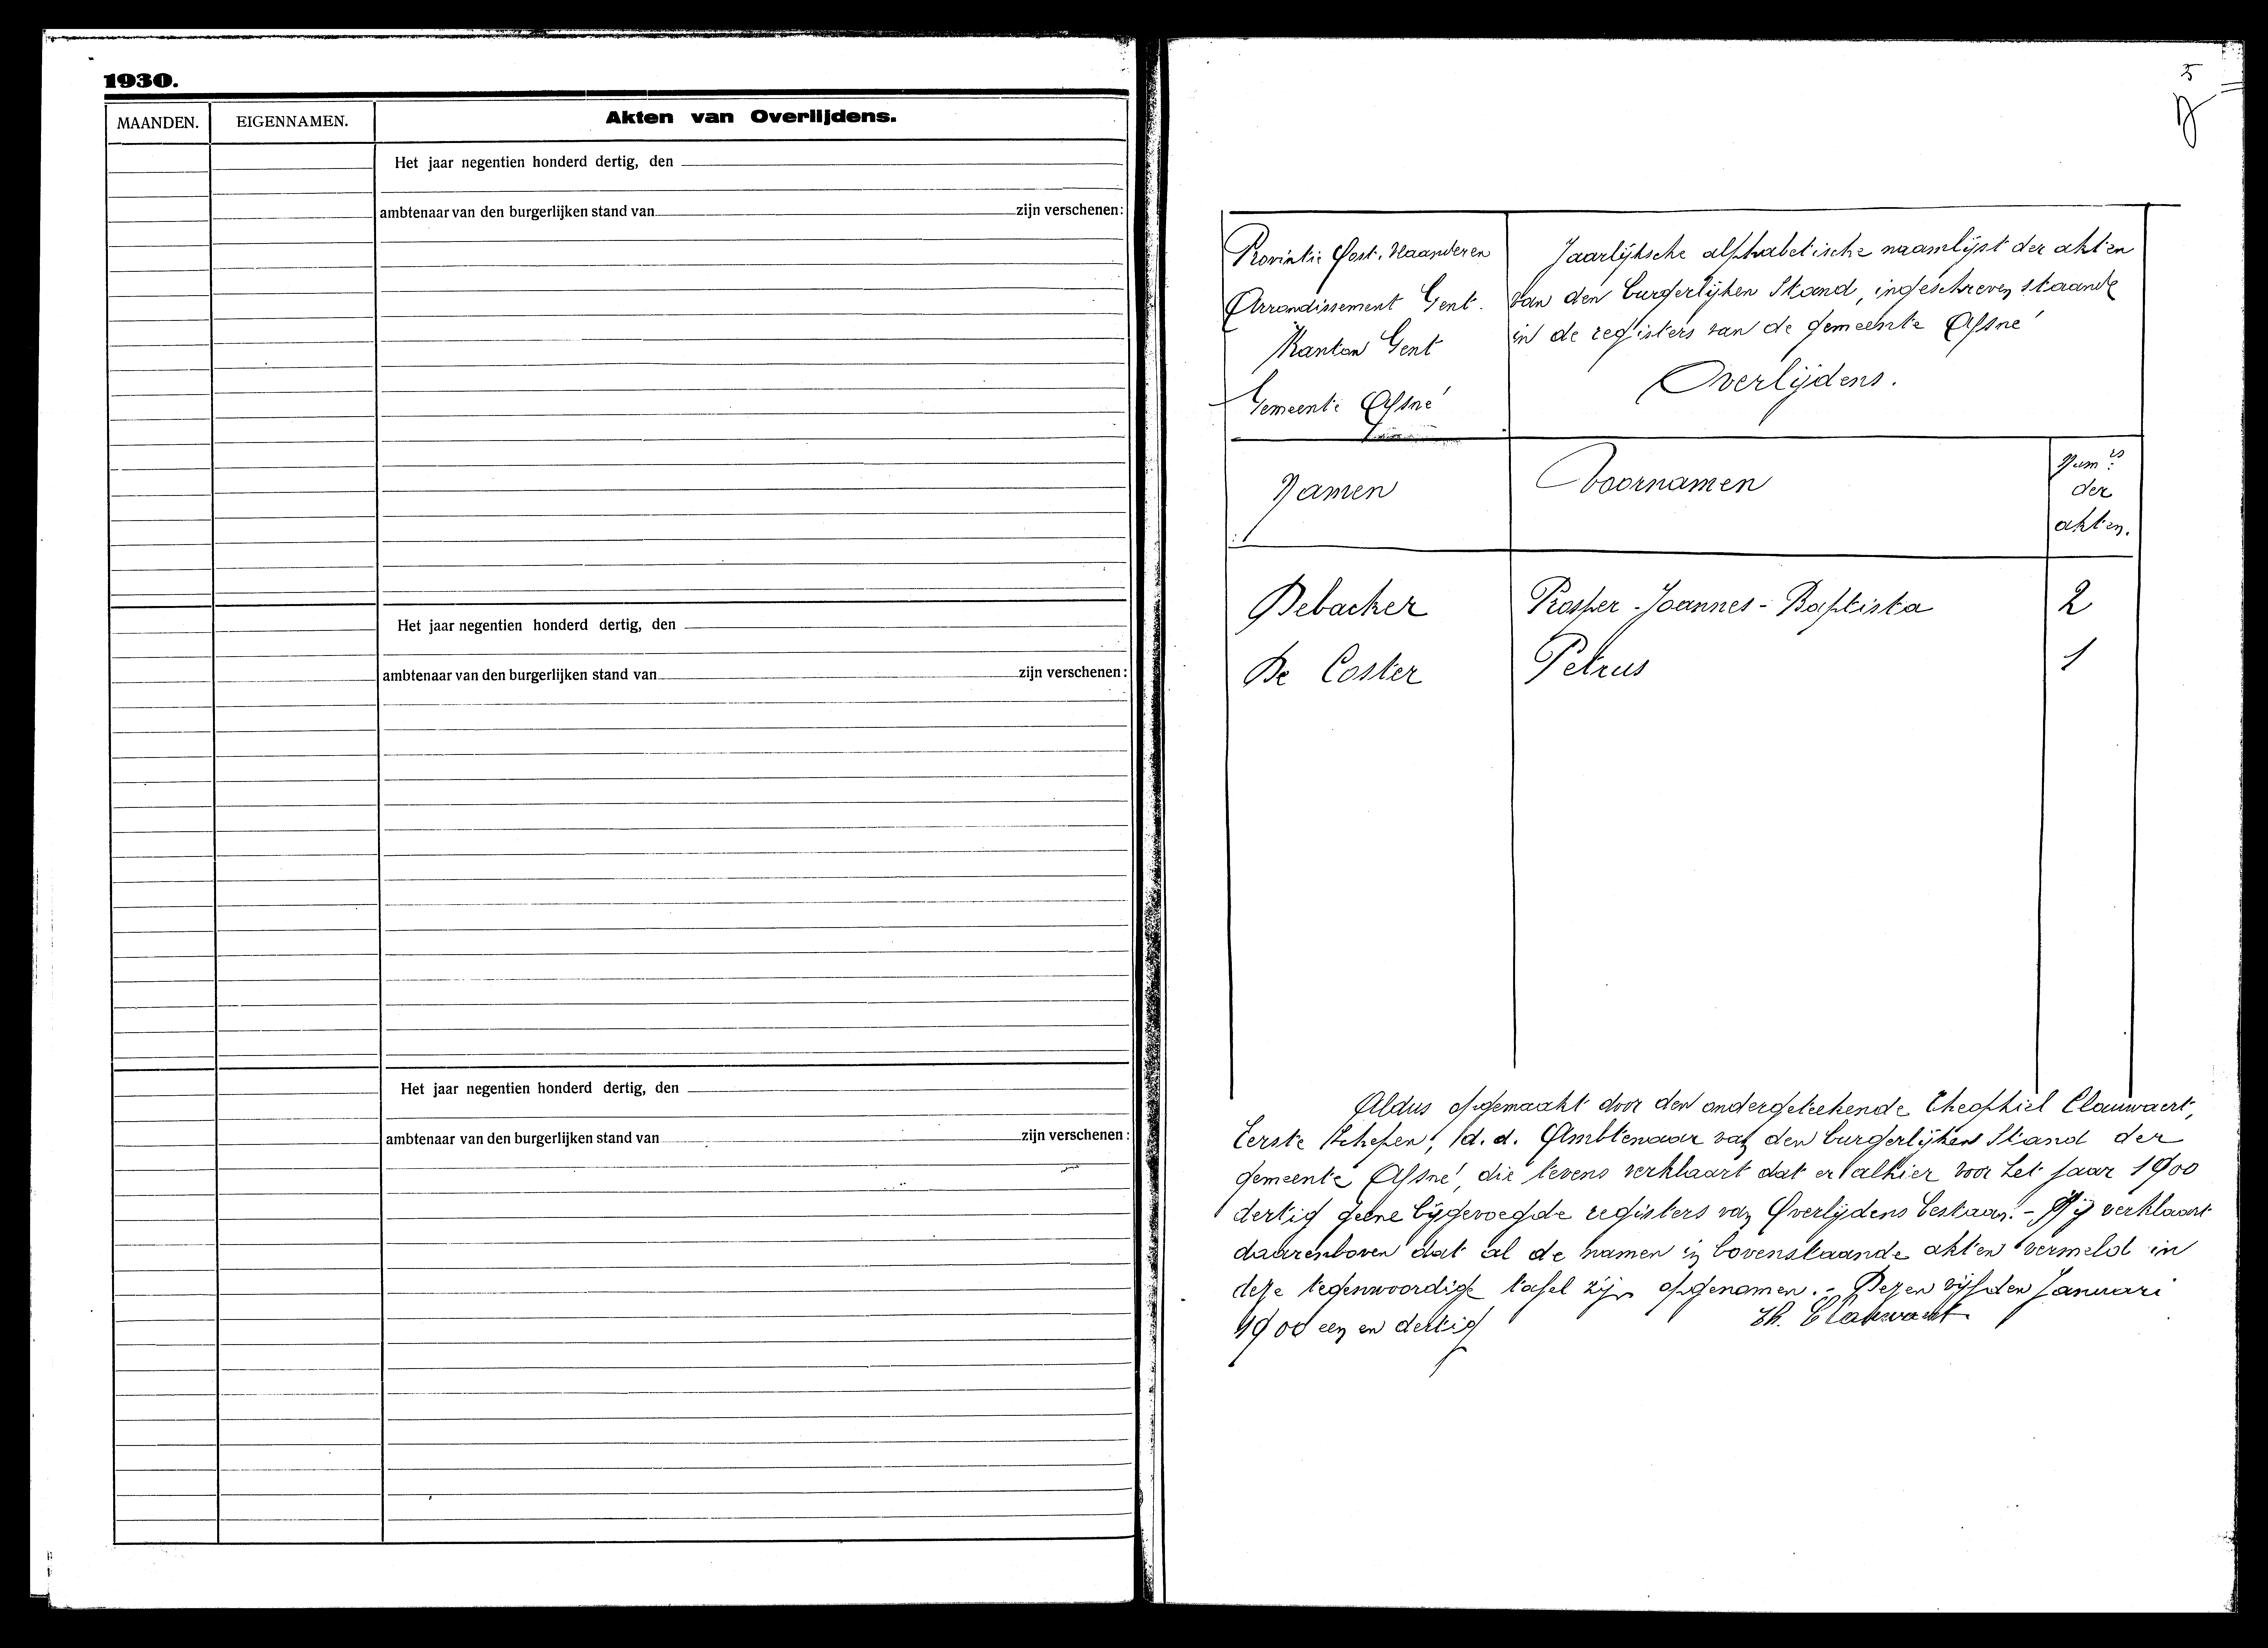 1930.
MAANDEN. EIGENNAMEN. Akten van Overlijdens.
Het jaar negentien honderd dertig, den
ambtenaar van den burgerlijken stand van zijn verschenen:
Het jaar negentien honderd dertig, den
ambtenaar van den burgerlijken stand van zijn verschenen:
Het jaar negentien honderd dertig, den
ambtenaar van den burgerlijken stand van zijn verschenen:
5
Provintie Oost-Vlaanderen
Arrondissement Gent.
Kanton Gent
Gemeente Afsné
Jaarlijksche alphabetische naamlijst der akten
van den burgerlijken Stand, ingeschreven staande
in de registers van de gemeente Afsné
Overlijdens.
Namen Voornamen Num.rs
der
akten.
Debacker Prosper-Joannes-Baptista 2
De Coster Petrus 1
Aldus opgemaakt door den ondergeteekende Theophiel Clauwaert,
Eerste Schepen, d.d. Ambtenaar van den burgerlijken Stand der
gemeente Afsné, die tevens verklaart dat er alhier voor het jaar 1900
dertig geene bijgevoegde registers van Overlijdens bestaan. - Hij verklaart
daarenboven dat al de namen in bovenstaande akten vermeld in
deze tegenwoordige tafel zijn opgenomen. - Dezen vijfden Januari
1900 een en dertig
Th. Clauwaert